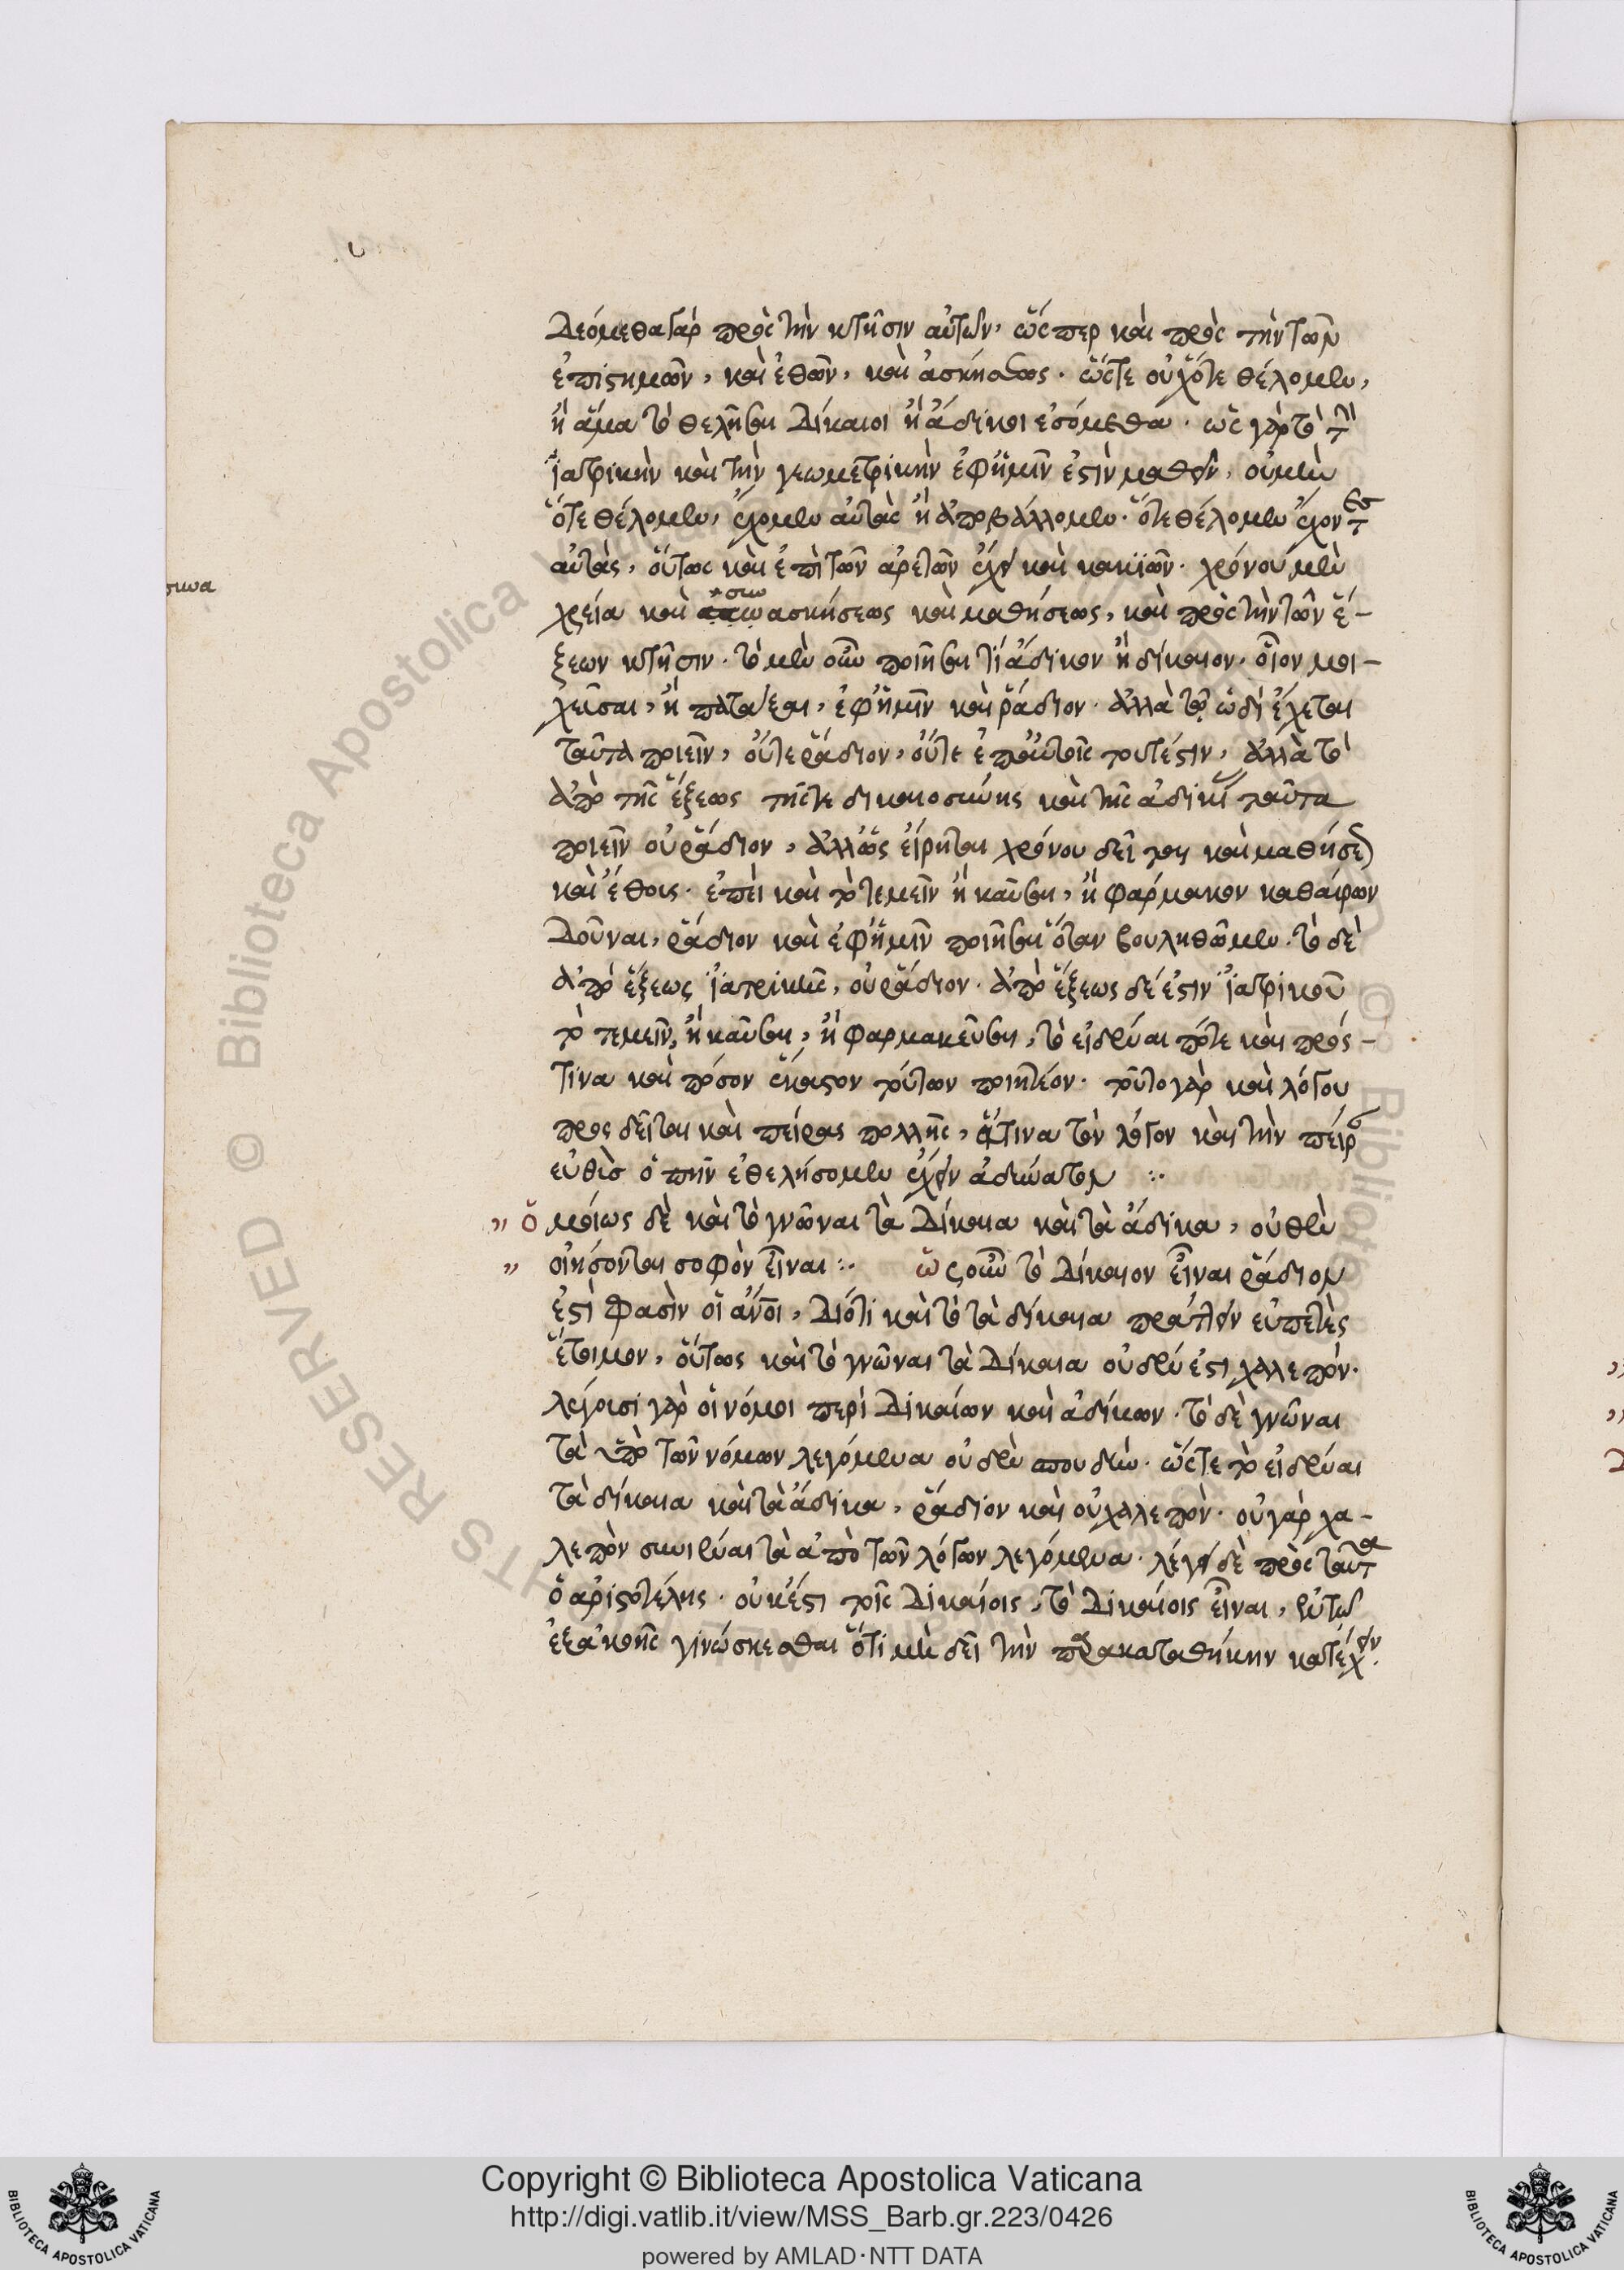 Δεόμεθα γὰρ πρὸς τὴν κτῆσιν αὐτῶν, ὥσπερ καὶ πρὸς τὴν τῶν
ἐπιστημῶν, καὶ ἐθῶν, καὶ ἀσκήσεως. ὥστε οὐχ ὅτε θέλομεν,
ἢ ἅμα τὸ θελῆσαι δίκαιοι ἢ ἄδικοι ἐσόμεθα. ὡς γὰρ τὸ τὴν
ἰατρικὴν καὶ τὴν γεωμετρικὴν ἐφ' ἡμῖν ἐστὶν μαθεῖν, οὐ μὲν
ὅτε θέλομεν, ἔχομεν αὐτὰς ἢ ἀποβάλλομεν. ὅτε θέλομεν ἔχοντες
αὐτάς, οὕτως καὶ ἐπὶ τῶν ἀρετῶν ἔχει καὶ κακιῶν. χρόνου μὲν
χρεία καὶ ἀσκήσεως καὶ μαθήσεως, καὶ πρὸς τὴν τῶν ἕ-
ξεων κτῆσιν. τὸ μὲν οὖν ποιῆσαι τί ἄδικον ἢ δίκαιον. οἷον μοι-
χεῦσαι, ἢ πατάξαι, ἐφ' ἡμῖν καὶ ῥάδιον. ἀλλὰ τῷ ὡδὶ ἔχεται
ταῦτα ποιεῖν, οὔτε ῥάδιον, οὔτε ἐπ' αὐτοῖς τουτέστιν, ἀλλὰ τὸ
ἀπὸ τῆς ἕξεως τῆς τε δικαιοσύνης καὶ τῆς ἀδικίας ταῦτα
ποιεῖν οὐ ῥάδιον, ἀλλ' ὡς εἴρηται χρόνου δεῖται καὶ μαθήσεως
καὶ ἔθους. ἐπεὶ καὶ τὸ τεμεῖν ἢ καῦσαι, ἢ φάρμακον καθαίρων
Δοῦναι, ῥάδιον καὶ ἐφ' ἡμῖν ποιῆσαι ὅταν βουληθῶμεν. τὸ δὲ
ἀπὸ ἕξεως ἰατρικῆς, οὐ ῥάδιον. ἀπὸ ἕξεως δέ ἐστιν ἰατρικοῦ
τὸ τεμεῖν, ἢ καῦσαι, ἢ φαρμακεῦσαι, τὸ εἰδέναι πότε καὶ πρός-
τινα καὶ πόσον ἕκαστον τούτων ποιητέον. τοῦτο γὰρ καὶ λόγου
προσδεῖται καὶ πείρας πολλῆς, ἅτινα τὸν λόγον καὶ τὴν πεῖραν
εὐθὺς ὁπην ἐθελήσομεν ἔχειν ἀδύνατον :·
" ὁμοίως δὲ καὶ τὸ γνῶναι τὰ δίκαια καὶ τὰ ἄδικα, οὐθὲν
" οἰήσονται σοφὸν εἶναι :· ὡς οὖν τὸ δίκαιον εἶναι ῥάδιον
ἐστί φασὶν οἱ ἄνοι, διότι καὶ τὸ τὰ δίκαια πράττειν εὐπετὲς
ἕτοιμον, οὕτως καὶ τὸ γνῶναι τὰ δίκαια οὐδέν ἐστι χαλεπόν.
λέγουσι γὰρ οἱ νόμοι περὶ δικαίων καὶ ἀδίκων. τὸ δὲ γνῶναι
τὰ ὑπὸ τῶν νόμων λεγόμενα οὐδὲν σπουδὴν. ὥστε τὸ εἰδέναι
τὰ δίκαια καὶ τὰ ἄδικα, ῥάδιον καὶ οὐ χαλεπόν. οὐ γὰρ χα-
λεπὸν συνιέναι τὰ ἀπὸ τῶν λόγων λεγόμενα. λέγει δὲ πρὸς ταῦτα
ὁ ἀριστοτέλης. οὐκ ἔστι τοῖς δικαίοις, τὸ δικαίοις εἶναι, ἐν τῷ
ἐξ ἀκοῆς γινώσκεσθαι ὅτι μὴ δεῖ τὴν παρακαταθήκην κατέχειν.
Copyright © Biblioteca Apostolica Vaticana
http://digi.vatlib.it/view/MSS_Barb.gr.223/0426
powered by AMLAD·NTT DATA